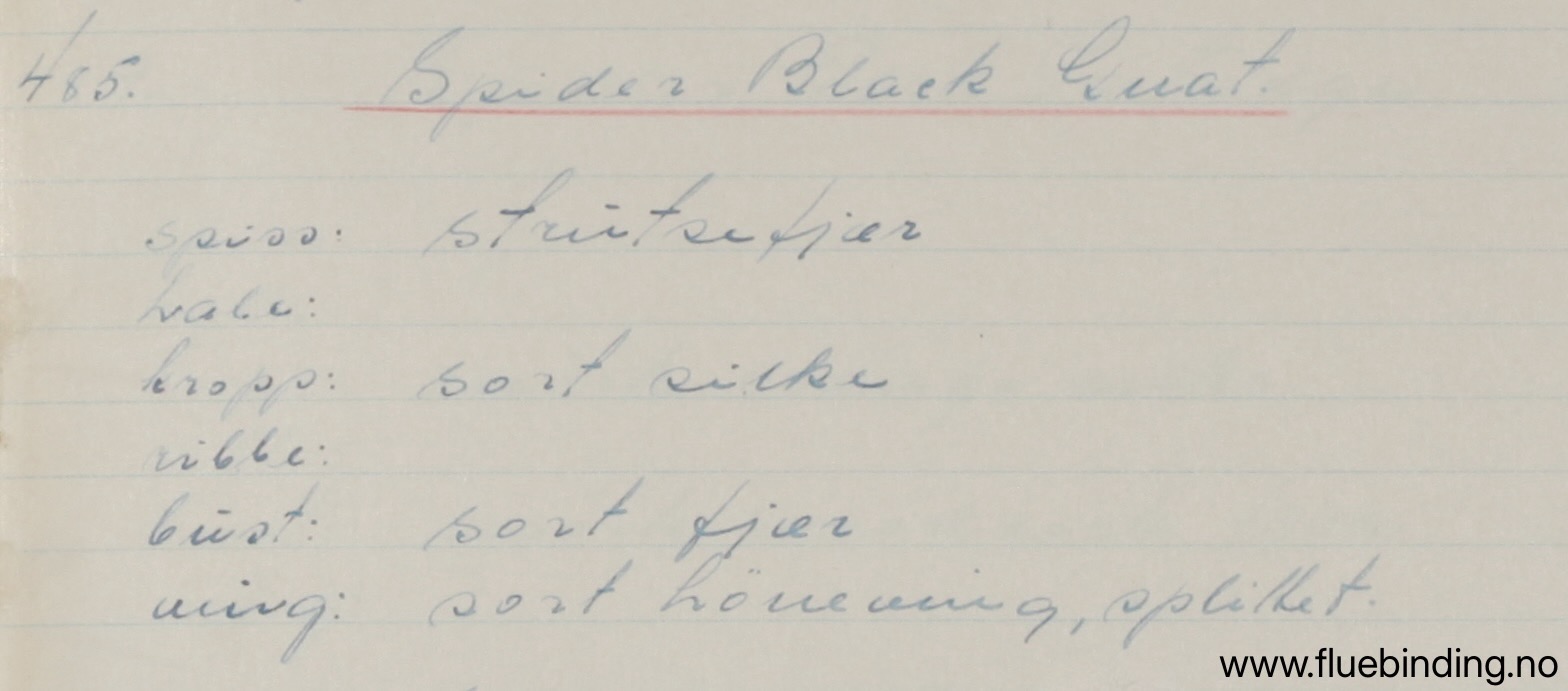 485. Spider Black Gnat.
spiss: strutsefjær
hale:
kropp: sort silke
ribbe:
bust: sort fjær
ving: sort höneving, splittet.
www.fluebinding.no